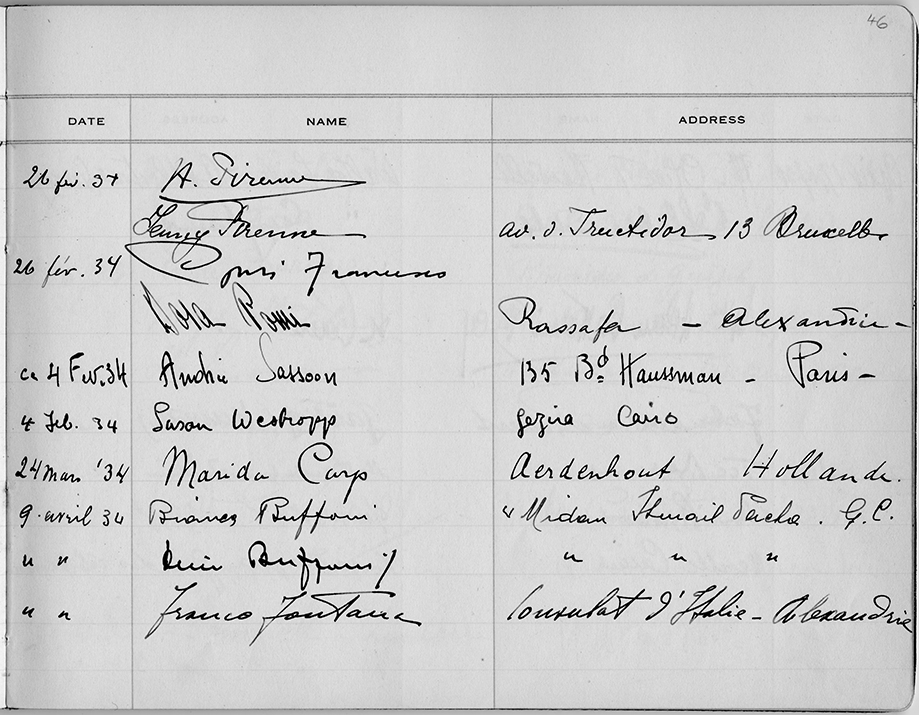 46
DATE NAME ADDRESS
26 fév. 34 H. Pirenne
Jenny Pirenne av. d. Fructidor 13 Bruxelles
26 fév. 34
Dora Rassafa - Alexandrie -
4 Fev. 34 André Sassoon 135 Bd. Haussman - Paris -
4 Feb. 34 Susan Westropp Gezira Cairo
24 Mars '34 Marida Carp Aerdenhout Hollande.
9 avril 34 Bianca Buffoni 4 Midan Ismail Pacha. G.C.
" " Buffoni " " "
" " Franco Fontana Consulat d'Italie - Alexandrie